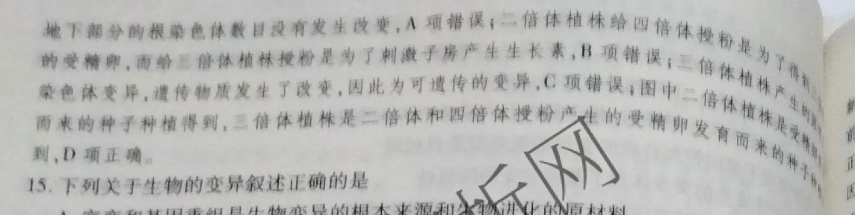 地下部分的根染色体数目没有发生改变,A 项错误;二倍体植株给四倍体授粉是为了得到三
的受精卵,而给三倍体植株授粉是为了刺激子房产生生长素,B 项错误;三倍体植株产生的
染色体变异,遗传物质发生了改变,因此为可遗传的变异,C 项错误;图中二倍体植株是受精卵
而来的种子种植得到,三倍体植株是二倍体和四倍体授粉产生的受精卵发育而来的种子种
到,D 项正确。
15. 下列关于生物的变异叙述正确的是
A. 突变和基因重组是生物变异的根本来源和生物进化的原材料